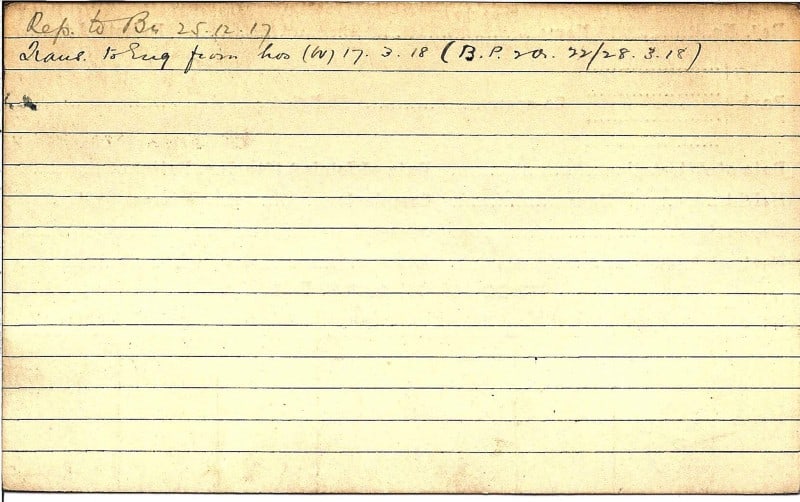 Rep. to Bn 25.12.17
Trans. to Eng from hos (W) 17.3.18 (B.P. 20. 22/28.3.18)